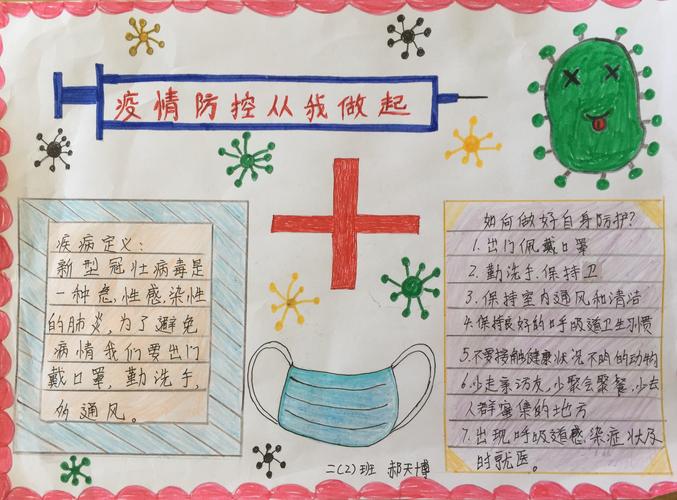 疫情防控从我做起
疾病定义:
新型冠壮病毒是
一种急性感染性
的肺炎,为了避免
病情我们要出门
戴口罩,勤洗手,
多通风。
如何做好自身防护?
1.出门佩戴口罩
2.勤洗手.保持卫
3.保持室内通风和清洁
4.保持良好的呼吸道卫生习惯
5.不要接触健康状况不明的动物
6.少走亲访友,少聚会聚餐,少去
人群密集的地方
7.出现呼吸道感染症状及
时就医。
二(2)班 郝天博